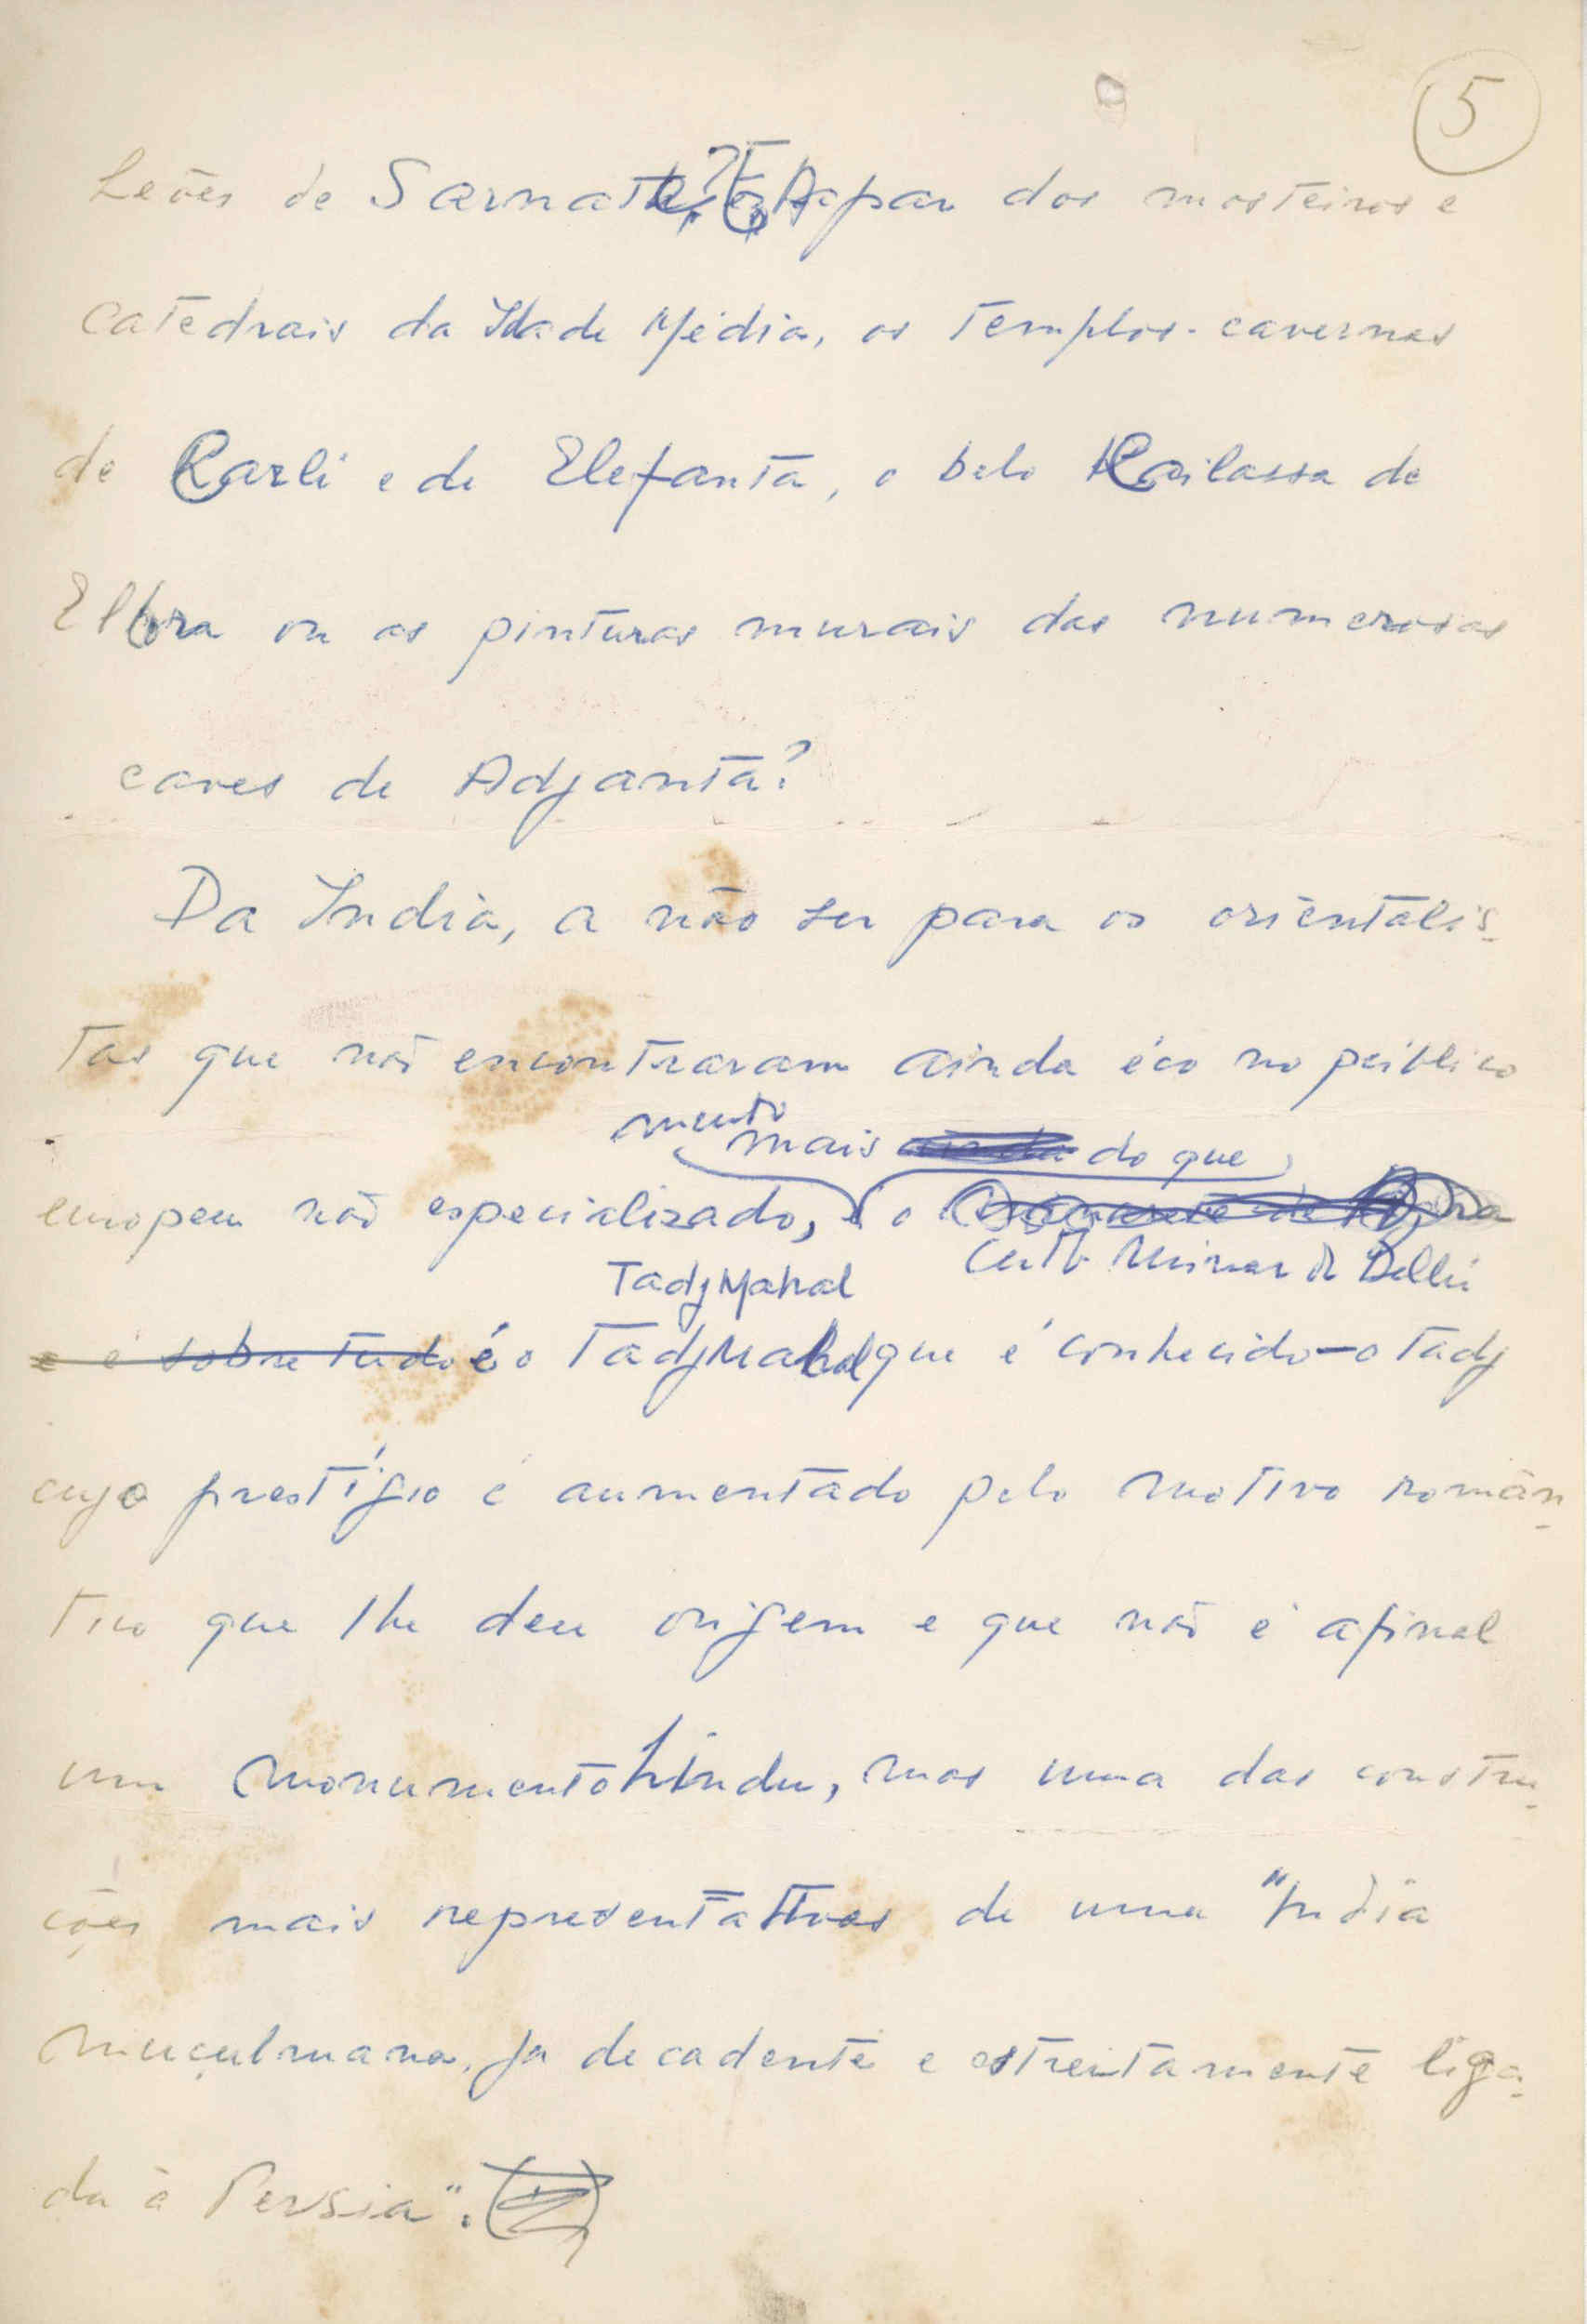 5
Leões de Sarnath? E A par dos mosteiros e
catedrais da Idade Média, os templos-cavernas
de Carli e de Elefanta, o belo Kailassa de
Ellora ou as pinturas murais das numerosas
caves de Adjantá?
Da India, a não ser para os orientalis-
tas que não encontraram ainda éco no público
muito
mais do que
europeu não especializado, o
Cutb Minar de Delhi
Tadj Mahal
e é sobre tudo é o Tadj Mahal que é conhecido — o Tadj
cujo prestígio é aumentado pelo motivo român-
tico que lhe deu origem e que não é afinal
um monumento hindu, mas uma das constru-
ções mais representativas de uma "India
muçulmana, ja decadente e estreitamente liga-
da à Persia".